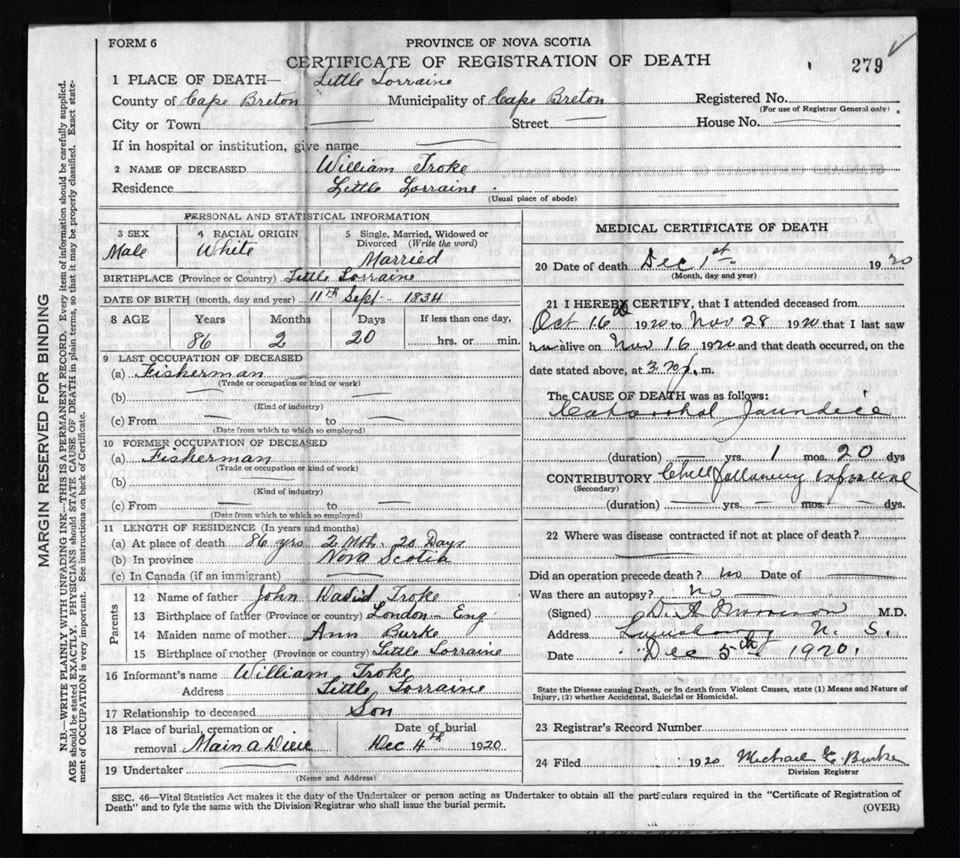 FORM 6
PROVINCE OF NOVA SCOTIA
CERTIFICATE OF REGISTRATION OF DEATH
279
1 PLACE OF DEATH— Little Lorraine
County of Cape Breton Municipality of Cape Breton Registered No.
(For use of Registrar General only)
City or Town Street House No.
If in hospital or institution, give name
2 NAME OF DECEASED William Troke
Residence Little Lorraine
(Usual place of abode)
PERSONAL AND STATISTICAL INFORMATION
3 SEX Male
4 RACIAL ORIGIN White
5 Single, Married, Widowed or Divorced (Write the word) Married
BIRTHPLACE (Province or Country) Little Lorraine
DATE OF BIRTH (month, day and year) 11th Sept - 1834
8 AGE Years Months Days If less than one day,
86 2 20 hrs. or min.
9 LAST OCCUPATION OF DECEASED
(a) Fisherman
(Trade or occupation or kind or work)
(b)
(Kind of industry)
(c) From to
(Date from which to which so employed)
10 FORMER OCCUPATION OF DECEASED
(a) Fisherman
(Trade or occupation or kind of work)
(b)
(Kind of industry)
(c) From to
(Date from which to which so employed)
11 LENGTH OF RESIDENCE (In years and months)
(a) At place of death 86 yrs 2 Mots. 20 Days
(b) In province Nova Scotia
(c) In Canada (if an immigrant)
Parents
12 Name of father John David Troke
13 Birthplace of father (Province or country) London - Eng
14 Maiden name of mother Ann Burke
15 Birthplace of mother (Province or country) Little Lorraine
16 Informant's name William Troke
Address Little Lorraine
17 Relationship to deceased Son
18 Place of burial, cremation or removal Main a Dieu
Date of burial Dec 4th 1920
19 Undertaker
(Name and Address)
MEDICAL CERTIFICATE OF DEATH
20 Date of death Dec 1st 1920
(Month, day and year)
21 I HEREBY CERTIFY, that I attended deceased from
Oct 16 1920 to Nov 28 1920 that I last saw
him alive on Nov 16 1920 and that death occurred, on the
date stated above, at 3 m.
The CAUSE OF DEATH was as follows:
Catarrhal Jaundice
(duration) yrs. 1 mos. 20 dys
CONTRIBUTORY Chill following
(Secondary)
(duration) yrs. mos. dys.
22 Where was disease contracted if not at place of death?
Did an operation precede death? No Date of
Was there an autopsy? No
(Signed) D. A Morrison M.D.
Address Louisbourg N. S.
Date Dec 5th 1920.
State the Disease causing Death, or in death from Violent Causes, state (1) Means and Nature of
Injury, (2) whether Accidental, Suicidal or Homicidal.
23 Registrar's Record Number
24 Filed 1920 Michael E. Burke
Division Registrar
SEC. 46—Vital Statistics Act makes it the duty of the Undertaker or person acting as Undertaker to obtain all the particulars required in the "Certificate of Registration of
Death" and to fyle the same with the Division Registrar who shall issue the burial permit.
(OVER)
MARGIN RESERVED FOR BINDING
N.B.—WRITE PLAINLY WITH UNFADING INK—THIS IS A PERMANENT RECORD. Every item of information should be carefully supplied.
AGE should be stated EXACTLY. PHYSICIANS should STATE CAUSE OF DEATH in plain terms, so that it may be properly classified. Exact state-
ment of OCCUPATION is very important. See instructions on back of Certificate.